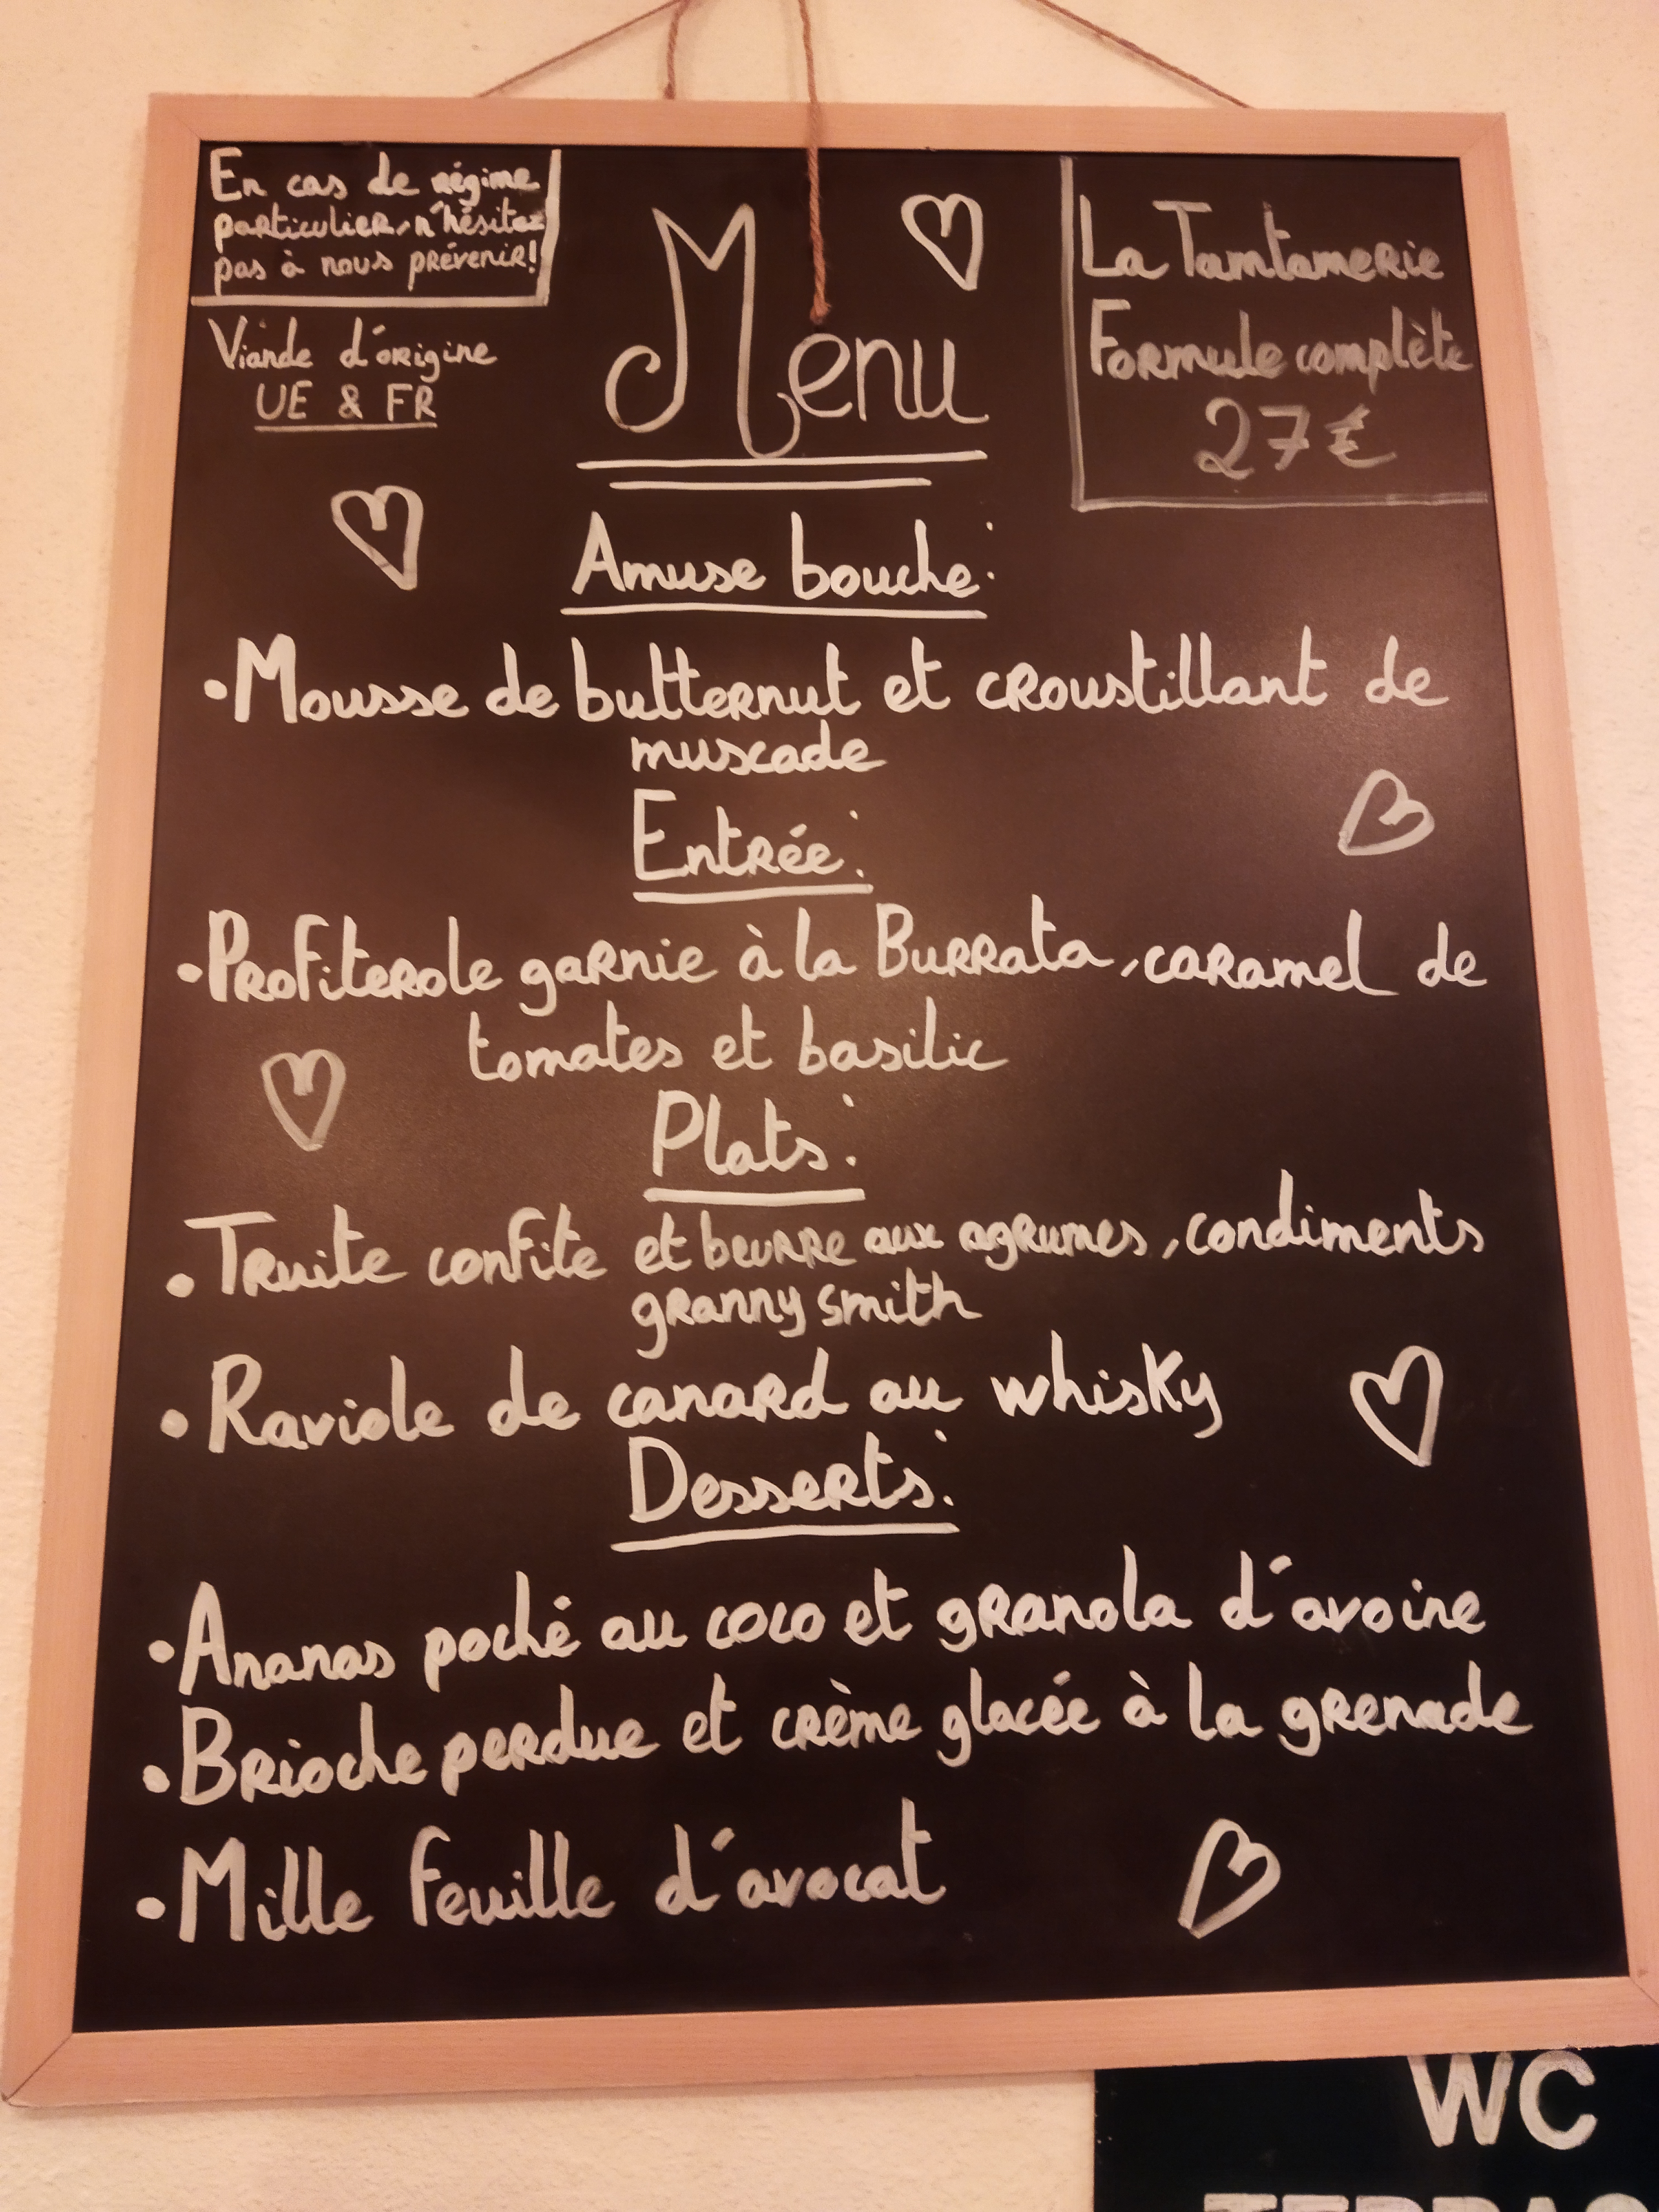 En cas de régime
particulier, n'hésitez
pas à nous prévenir!
Viande d'origine
UE & FR
Menu
La Tamtamerie
Formule complète
27€
Amuse bouche:
•Mousse de butternut et croustillant de
muscade
Entrée:
•Profiterole garnie à la Burrata, caramel de
tomates et basilic
Plats:
•Truite confite et beurre aux agrumes, condiments
granny smith
•Raviole de canard au whisky
Desserts:
•Ananas poché au coco et granola d'avoine
•Brioche perdue et crème glacée à la grenade
•Mille feuille d'avocat
WC